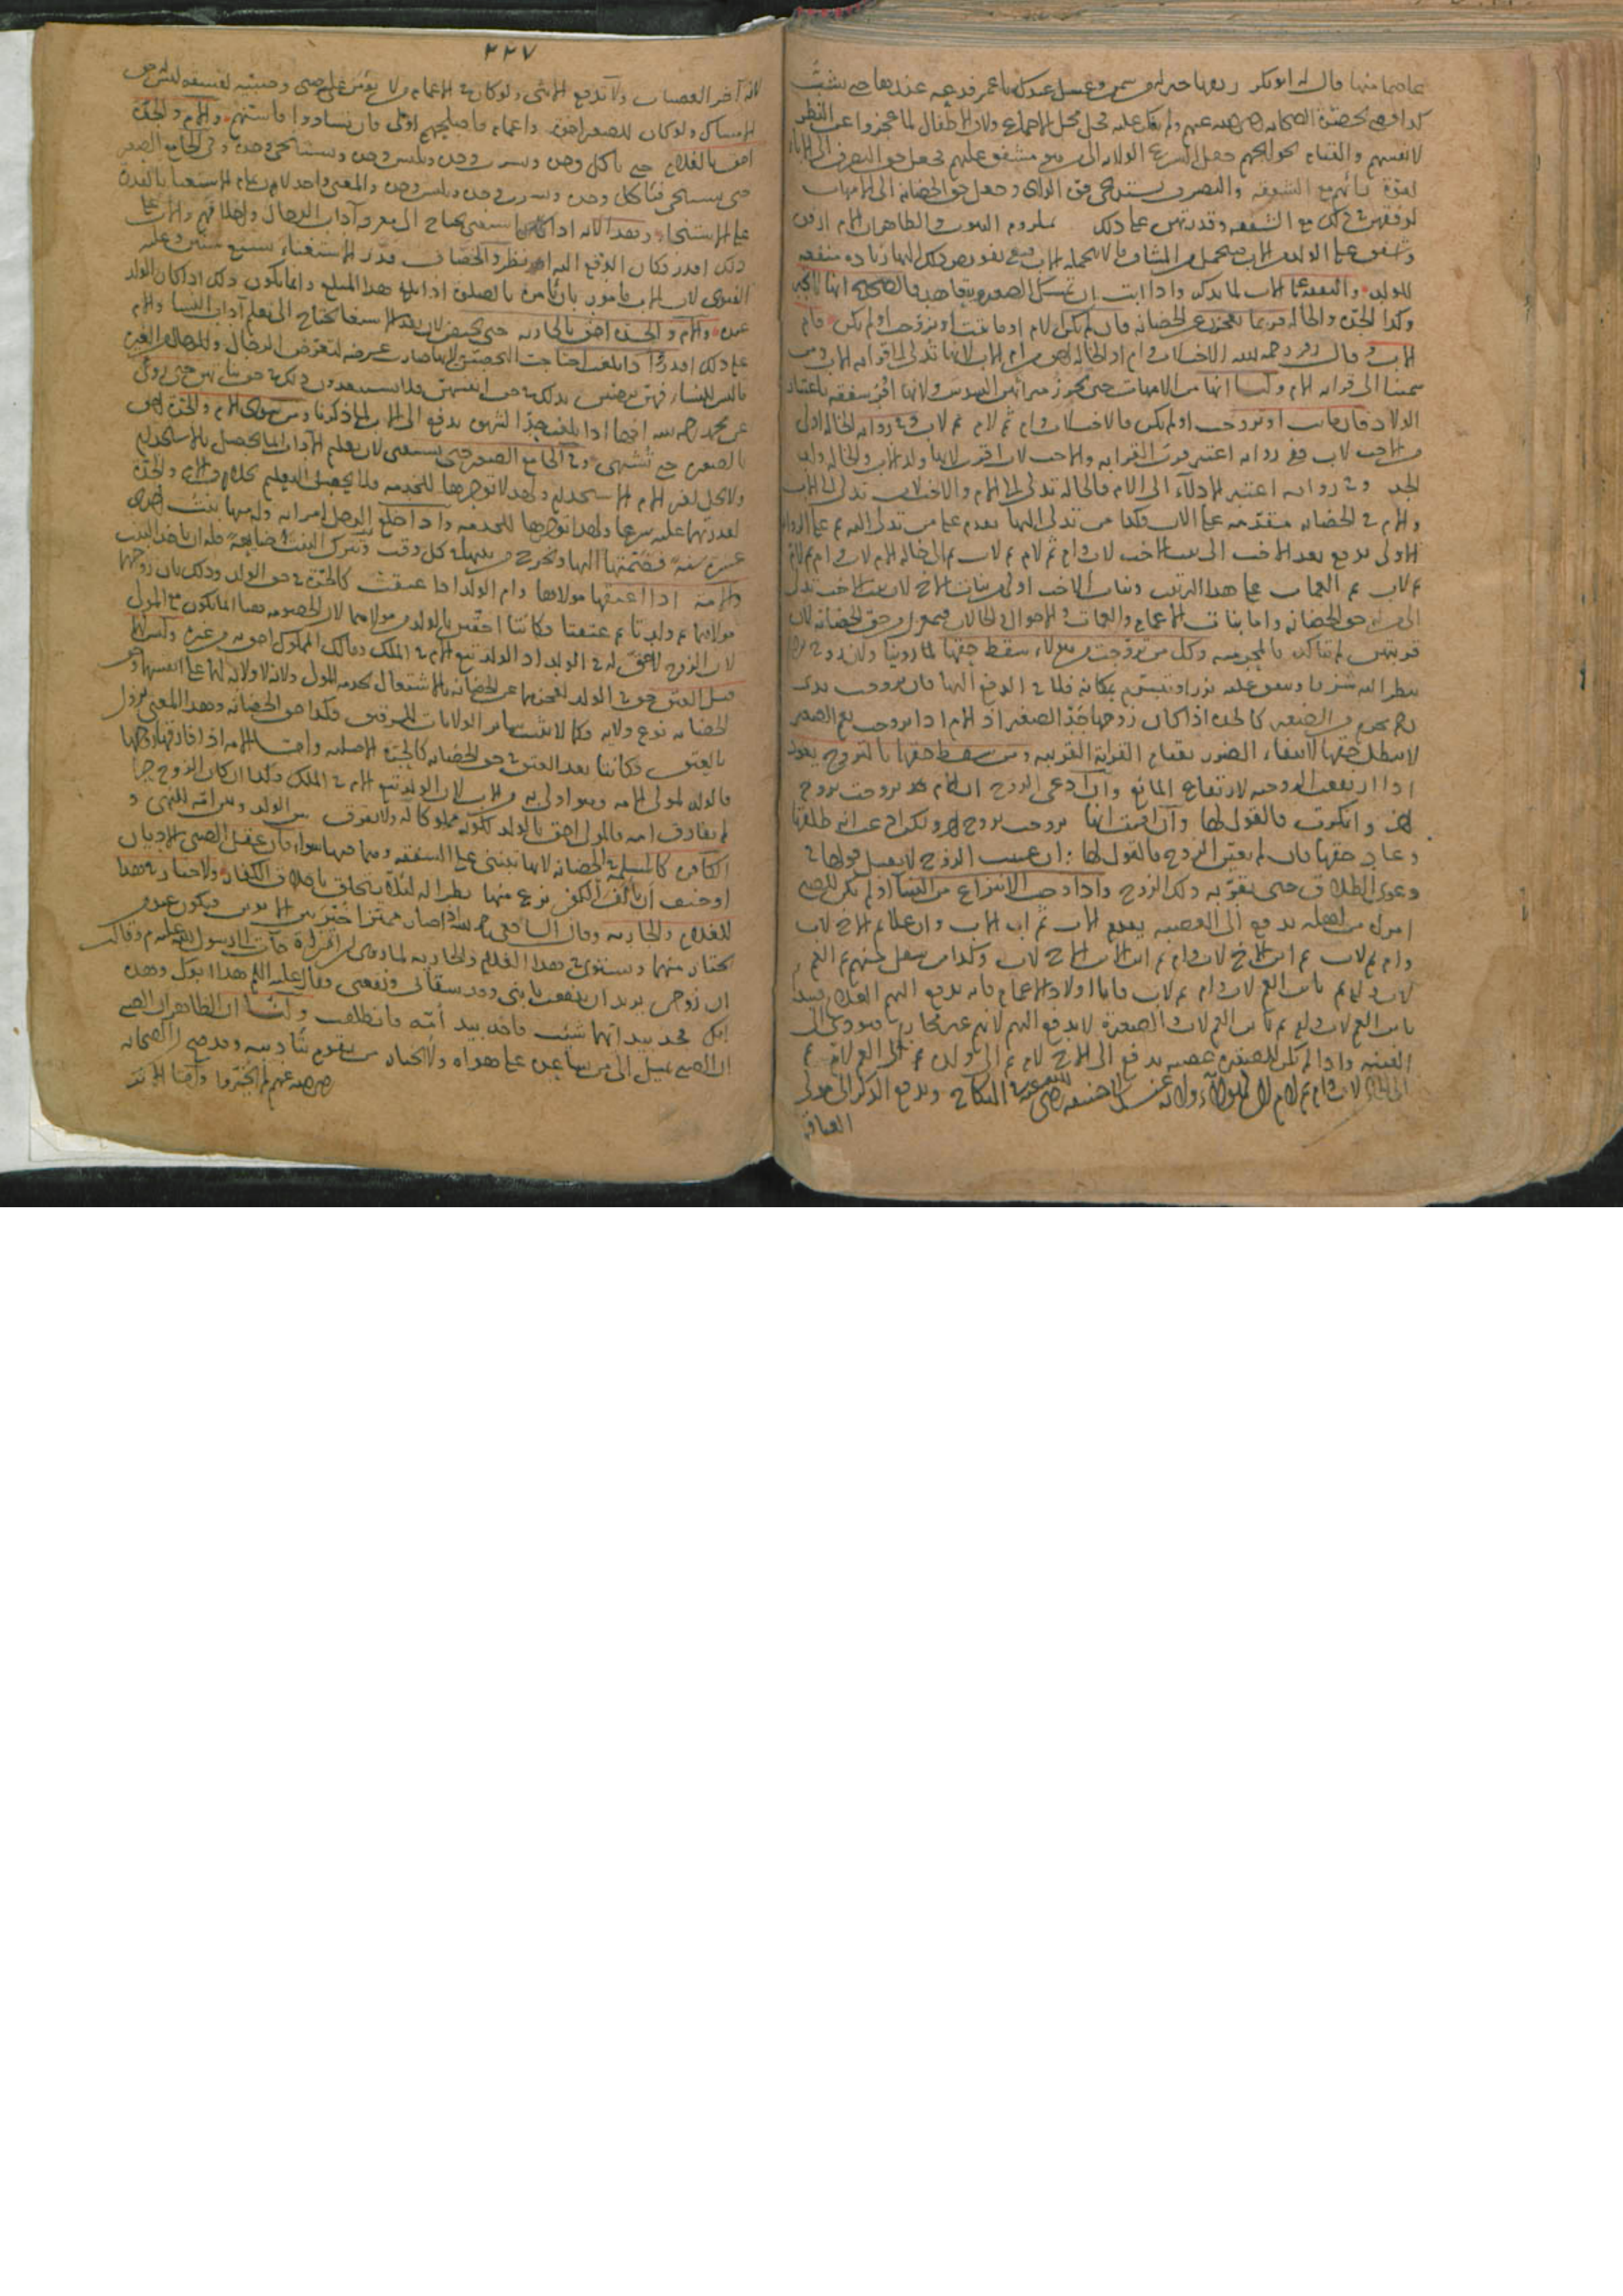 عاصما منها قال له ابو بكر ريقها خير له من سمن وعسل عندك يا عمر فدعه عندها حتى يشبّ
كذا قضى بحضرة الصحابة رضي الله عنهم ولم ينكر عليه فحل محل الاجماع ولان الاطفال لما عجزوا عن النظر
لانفسهم والقيام بحوايجهم جعل الشرع الولاية الى من هو مشفق عليهم فجعل حق التصرف الى الاباء
لقوة رأيهم مع الشفقة والتصرف يستدعي قوة الرأي وجعل حق الحضانة الى الامهات
لرفقهن في ذلك مع الشفقة وقدرتهن على ذلك بلزوم البيوت والظاهر ان الام ارفق
واشفق على الولد من الاب فتحمل من المشاق ما لا يتحمله الاب وفي تفويض ذلك اليها زيادة منفعة
للولد والنفقة على الاب لما يذكر واذا ابت ان تمسك الصغير وتتعاهده فالصحيح انها لا تجبر
وكذا الجدة والخالة فربما تعجز عن الحضانة فان لم يكن لام او ماتت او تزوجت او لم يكن فام
الاب وقال زفر رحمه الله الاخت لاب وام او الخالة احق من ام الاب لانها تدلي الى قرابة الاب وهن
سمينا الى قرابة الام ولنا انها من الامهات حتى تحرز ميراثهن السدس ولانها اوفر شفقة باعتبار
الولاد فان ماتت او تزوجت او لم يكن فالاخت لاب وام ثم لام ثم لاب وفي رواية الخالة اولى
من الاخت لاب ففي رواية اعتبر قرب القرابة والاخت لاب اقرب لانها ولد الاب والخالة ولد
الجد وفي رواية اعتبر الادلاء الى الام فالخالة تدلي الى الام والاخت لاب تدلي الى الاب
والام في الحضانة مقدمة على الاب فكذا من تدلي اليها يقدم على من تدلي اليه ثم على الرواية
الاولى يدفع بعد الاخت الى بنت الاخت لاب وام ثم لام ثم لاب ثم الى خالة الام لاب وام ثم لام
ثم لاب ثم العمات على هذا الترتيب وبنات الاخت اولى من بنات الاخ لان بنت الاخت تدلي
الى من له حق الحضانة واما بنات الاعمام والعمات والاخوال والخالات فبمعزل من حق الحضانة لان
قرابتهن لم تتأكد بالمحرمية وكل من تزوجت من هؤلاء سقط حقها لما روينا ولان زوج الام
ينظر اليه شزرا وينفق عليه نزرا فلا نظر في الدفع اليها فان تزوجت بذي
رحم محرم من الصغير كالجدة اذا كان زوجها جد الصغير او الام اذا تزوجت بعم الصغير
لا يبطل حقها لانتفاء الضرر بقيام القرابة القريبة ومن سقط حقها بالتزوج يعود
اذا ارتفعت الزوجية لارتفاع المانع وان ادعى الزوج ان الام قد تزوجت بزوج
اخر وانكرت فالقول لها وان اقرت انها تزوجت بزوج اخر ولكن ادعت انه طلقها
وعاد حقها فان لم تعين الزوج فالقول لها وان عينت الزوج لا يقبل قولها في
دعوى الطلاق حتى يقر به ذلك الزوج واذا وجب الانتزاع من النساء او لم يكن للصبي
امرأة من اهله يدفع الى العصبة فيقدم الاب ثم اب الاب وان علا ثم الاخ لاب
وام ثم لاب ثم ابن الاخ لاب وام ثم ابن الاخ لاب وكذا من سفل منهم ثم العم
لاب وام ثم لاب فاما اولاد الاعمام فانه يدفع اليهم الغلام فيبدأ
بابن العم لاب وام ثم بابن العم لاب والصغيرة لا تدفع اليهم لانهم غير محارم فيؤدي الى
الفتنة واذا لم يكن للصغيرة عصبة يدفع الى الاخ لام ثم الى ولده ثم الى العم لام ثم
الى الخال لاب وام ثم لاب ثم لام لان لهؤلاء ولاية عند ابي حنيفة رضي الله عنه في النكاح ويدفع الذكر الى مولى
العتاقة
٢٢٧
لانه آخر العصبات ولا تدفع الانثى ولو كان في الاعمام من لا يؤتمن على صبي وصبية لفسقه ليس له حق
الامساك ولو كان للصغير اخوة واعمام فاصلحهم اولى فان تساووا فاسنهم والام والجدة
احق بالغلام حتى يأكل وحده ويشرب وحده ويلبس وحده ويستنجي وحده وفي الجامع الصغير
حتى يستغني فيأكل وحده ويشرب وحده ويلبس وحده والمعنى واحد لان تمام الاستغناء بالقدرة
على الاستنجاء وهذا لانه اذا استغنى يحتاج الى معرفة آداب الرجال واخلاقهم والاب على
ذلك اقدر فكان الدفع اليه انظر والخصاف قدر الاستغناء بسبع سنين وعليه
الفتوى لان الاب مأمور بان يأمره بالصلوة اذا بلغ هذا المبلغ وانما يكون ذلك اذا كان الولد
عنده والام والجدة احق بالجارية حتى تحيض لان بعد الاستغناء تحتاج الى تعلم آداب النساء والام
على ذلك اقدر واذا بلغت احتاجت الى التحصين لانها صارت عرضة لتعرض الرجال وللرجال من الغيرة
ما ليس للنساء
عن محمد رحمه الله انها اذا بلغت حد الشهوة يدفع الى الاب لما ذكرنا ومن سوى الام والجدة احق
بالصغيرة حتى تشتهي وفي الجامع الصغير حتى تستغني لان تعليم الآداب انما يحصل بالاستخدام
ولا يحل لغير الام الاستخدام ولهذا لا تؤاجرها للخدمة فلا يحصل التعليم بخلاف الام والجدة
لقدرتهما عليه شرعا واذا خلع الرجل امرأته وله منها بنت احدى
عشرة سنة فضمتها اليها وتخرج من بيتها في كل وقت وتترك البنت ضايعة فله ان يأخذ البنت
والامة اذا اعتقها مولاها وام الولد اذا عتقت كالحرة في حق الولد وذلك بان زوجها
مولاهما ثم ولدتا ثم عتقتا فكانتا احق بالولد من مولاهما لان الخصومة ههنا انما تكون مع المولى
لان الزوج لا حق له في الولد اذ الولد يتبع الام في الملك ومالك المملوك احق به من غيره وليس لهما
قبل العتق حق في الولد لعجزهما عن الحضانة بالاشتغال بخدمة المولى ولانه لا ولاية لهما على انفسهما وحق
الحضانة نوع ولاية فكما لا يثبت سائر الولايات للمرقوق فكذا حق الحضانة وهذا المعنى يزول
بالعتق فكانتا بعد العتق في حق الحضانة كالحرة الاصلية واما الامة اذا فارقها زوجها
فالولد لمولى الامة وهو اولى به من الاب لان الولد يتبع الام في الملك وكذا ان كان الزوج حرا
لم يفارق امه فالمولى احق بالولد لكونه مملوكا له ولا يفرق بين الولد وبين امه للنهي و
الكافرة كالمسلمة في الحضانة لانها تبتني على الشفقة وهما فيها سواء فان عقل الصبي الاديان
او خيف ان يألف الكفر نزع منها نظرا له لئلا يتخلق باخلاق الكفار ولا خيار في هذا
للغلام والجارية وقال الشافعي رحمه الله اذا صار مميزا خير بين الابوين فيكون عند من
يختار منهما ويستوي في هذا الغلام والجارية لما روي ان امرأة جاءت الى رسول الله عليه السلام وقالت
ان زوجي يريد ان ينتفع بابني وقد سقاني ونفعني وقال عليه السلام هذا ابوك وهذه
امك فخذ بيد ايهما شئت فاخذ بيد امه فانطلقت ولنا ان الظاهر ان الصبي
ان الصبي يميل الى من يساعده على هواه ولا يختار من يقوم بتأديبه وقد صح ان الصحابة
رضي الله عنهم لم يخيروا واما الحديث